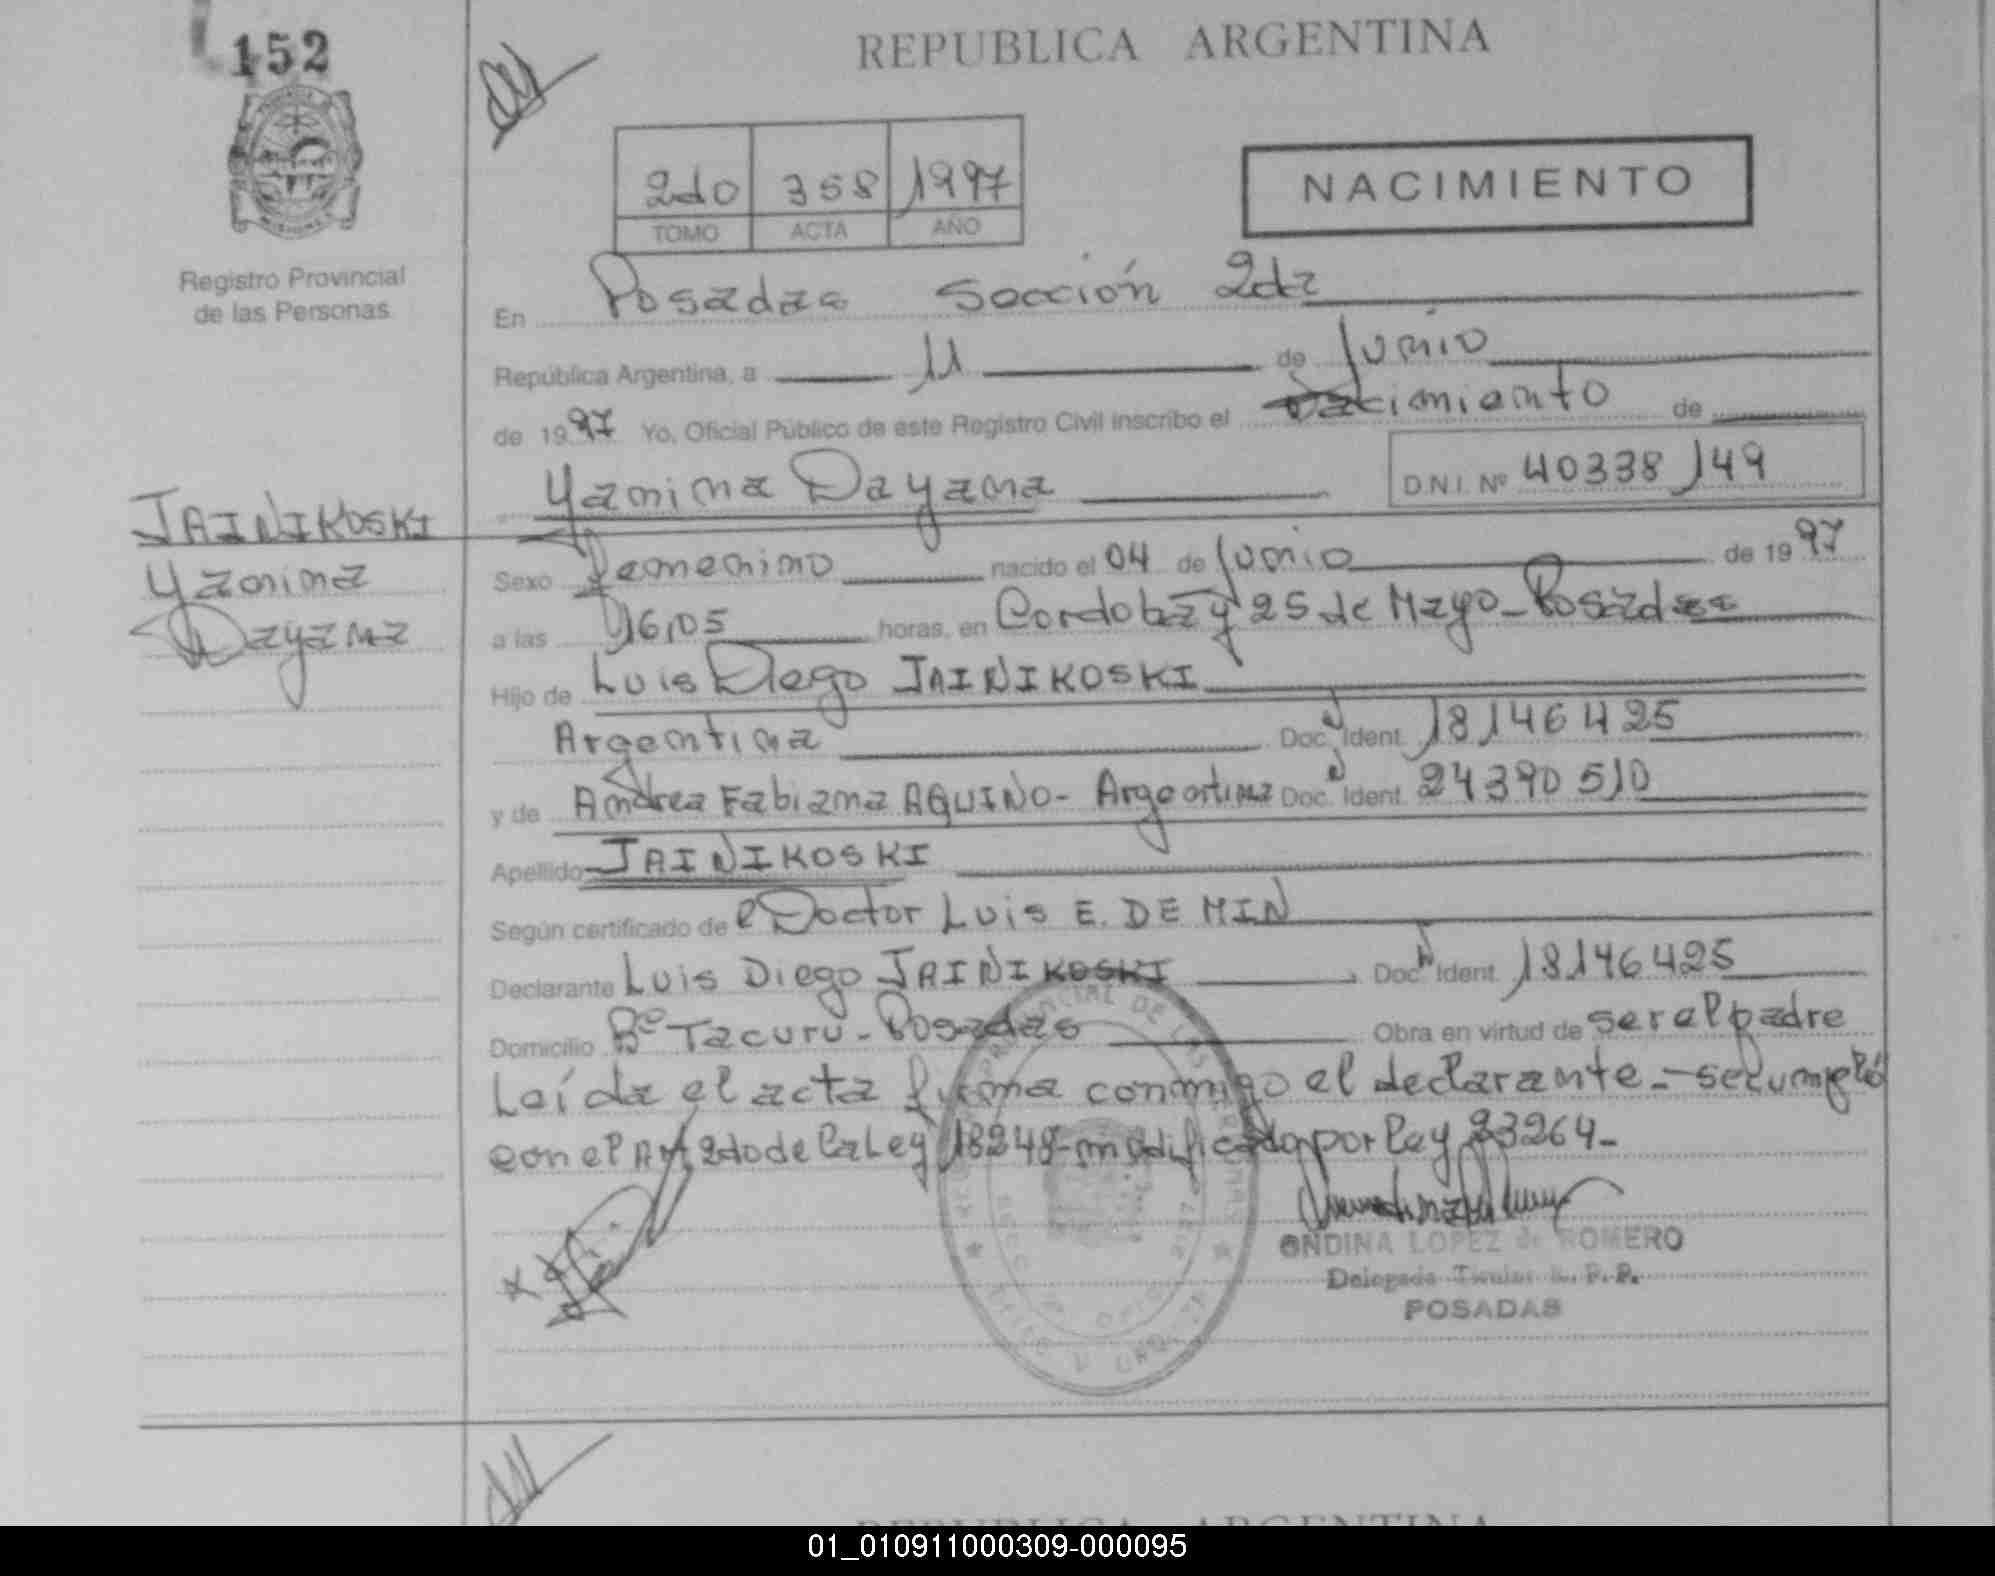 152
REPUBLICA ARGENTINA
2do 358 1997
TOMO ACTA AÑO
NACIMIENTO
Registro Provincial
de las Personas
En Posadas Sección 2da
República Argentina, a 11 de Junio
de 1997 Yo, Oficial Público de este Registro Civil inscribo el nacimiento de
Yanina Dayana D.N.I. Nº 40338149
JAINIKOSKI
Yanina
Dayana
Sexo Femenino nacido el 04 de Junio de 1997
a las 16,05 horas, en Cordoba y 25 de Mayo - Posadas
Hijo de Luis Diego JAINIKOSKI
Argentina Doc. Ident. 18146425
y de Andrea Fabiana AQUINO - Argentina Doc. Ident. 24390510
Apellido JAINIKOSKI
Según certificado de el Doctor Luis E. DE MIN
Declarante Luis Diego JAINIKOSKI Doc. Ident. 18146425
Domicilio Bº Tacuru - Posadas Obra en virtud de ser el padre
Leída el acta firma conmigo el declarante - se cumplió
con el Art 2do de la Ley 18248 - modificada por Ley 23264 -
ONDINA LOPEZ de ROMERO
Delegada Titular R. P. P.
POSADAS
REPUBLICA ARGENTINA
01_010911000309-000095